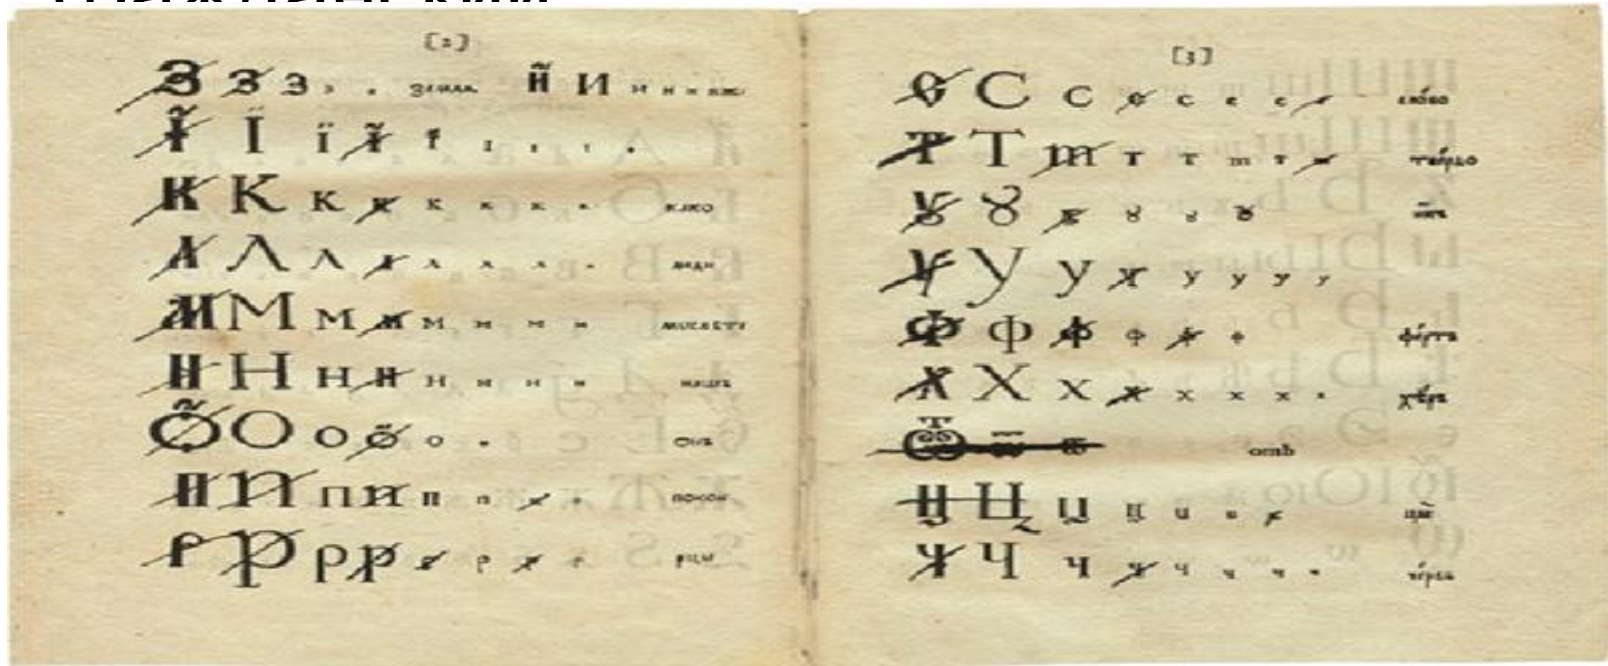 [2]
З З З з з земля Й И и и и иже
Ї Ї ї ї і і і і і
К К к к к к к к како
Л Л л л л л л л люди
М М м м м м м м мыслѣте
Н Н н н н н н н нашъ
О О о о о о онъ
П П п п п п п п покои
Р Р р р р р р р рцы
[3]
С С с с с с с с слово
Т Т т т т т т т твердо
Ꙋ Ꙋ ꙋ ꙋ ꙋ ꙋ
У У у у у у у у
Ф ф ф ф ф ф фертъ
Х Х х х х х х х херъ
Ѿ ѿ ѿ отъ
Ц Ц ц ц ц ц ц цы
Ч Ч ч ч ч ч ч ч червь